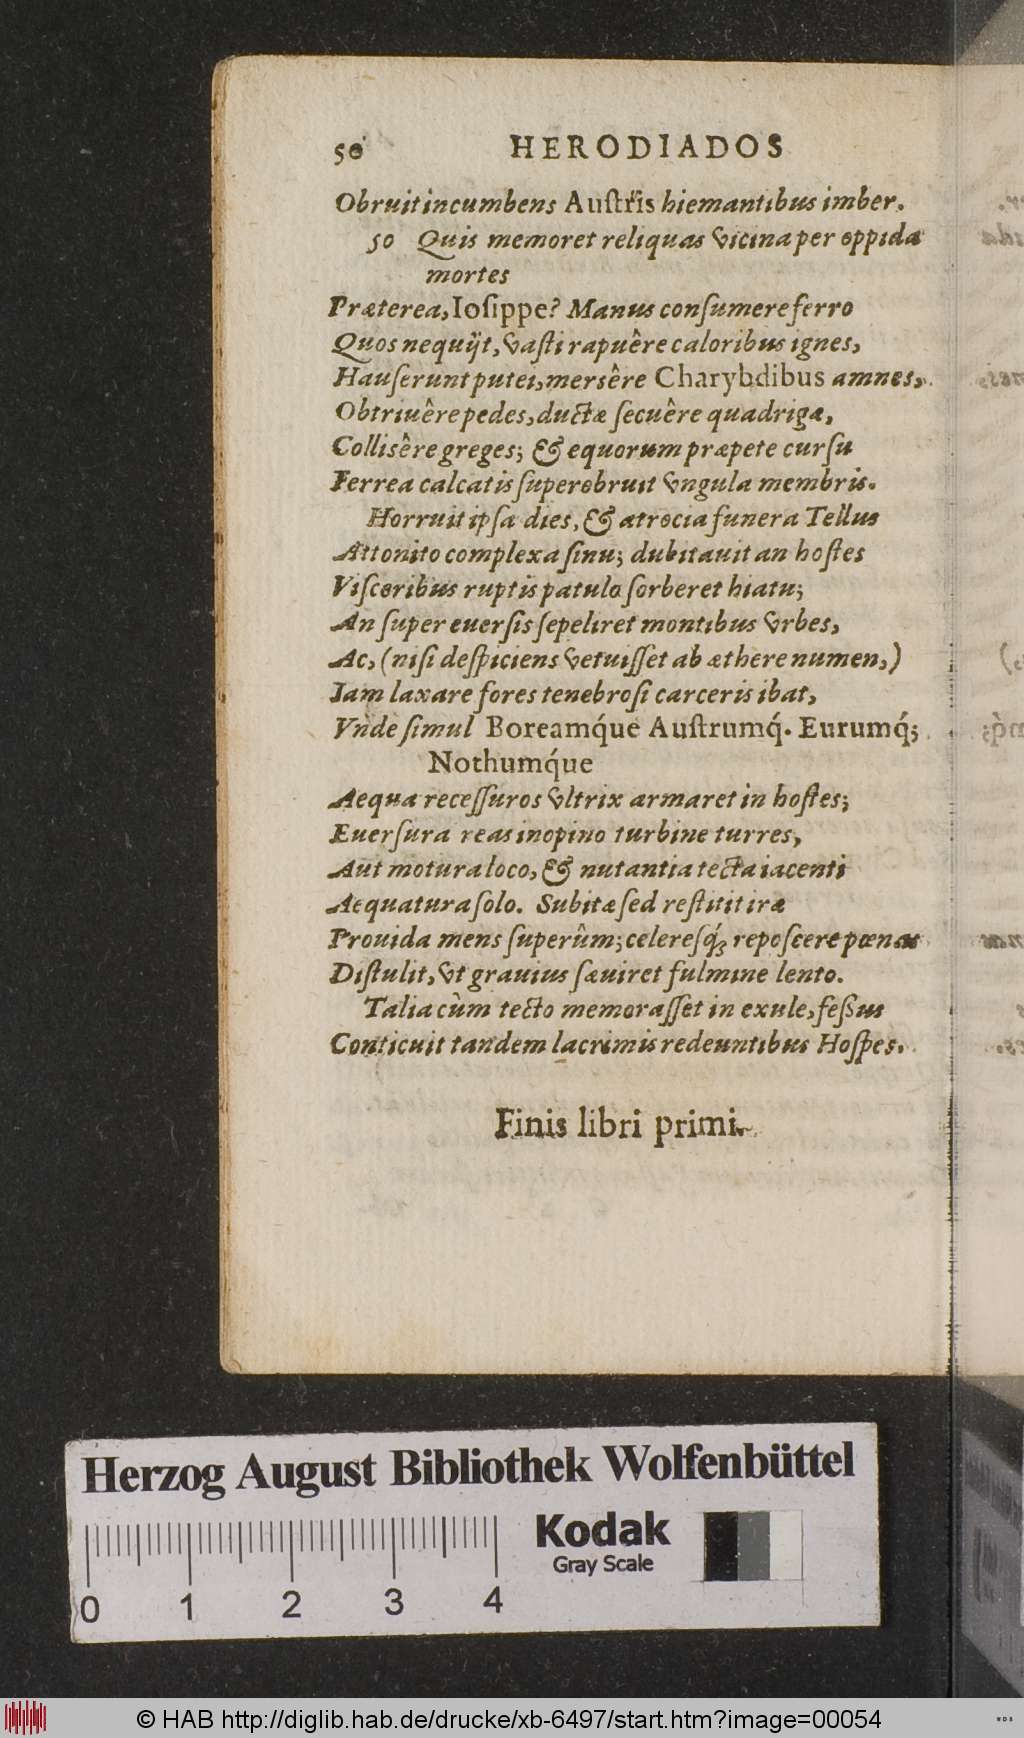 50 HERODIADOS
Obruit incumbens Auſtris hiemantibus imber.
50 Quis memoret reliquas vicina per oppida
mortes
Præterea, Ioſippe? Manus conſumere ferro
Quos nequijt, vaſti rapuêre caloribus ignes,
Hauſerunt putei, mersêre Charybdibus amnes,
Obtriuêre pedes, ductæ ſecuêre quadrigæ,
Collisêre greges; & equorum præpete curſu
Ferrea calcatis ſuperobruit vngula membris.
Horruit ipſa dies, & atrocia funera Tellus
Attonito complexa ſinu; dubitauit an hoſtes
Viſceribus ruptis patulo ſorberet hiatu;
An ſuper euerſis ſepeliret montibus vrbes,
Ac, (niſi deſpiciens vetuiſſet ab æthere numen,)
Iam laxare fores tenebroſi carceris ibat,
Vnde ſimul Boreamq́ue Auſtrumq́. Eurumq́;
Nothumq́ue
Aequa receſſuros vltrix armaret in hoſtes;
Euerſura reas inopino turbine turres,
Aut motura loco, & nutantia tecta iacenti
Aequatura ſolo. Subitæ ſed reſtitit iræ
Prouida mens ſuperûm; celereſq́ꝫ repoſcere pœnas
Diſtulit, vt grauius ſæuiret fulmine lento.
Talia cùm tecto memoraſſet in exule, feßus
Conticuit tandem lacrimis redeuntibus Hoſpes.
Finis libri primi.
Herzog August Bibliothek Wolfenbüttel
Kodak
Gray Scale
0 1 2 3 4
© HAB http://diglib.hab.de/drucke/xb-6497/start.htm?image=00054